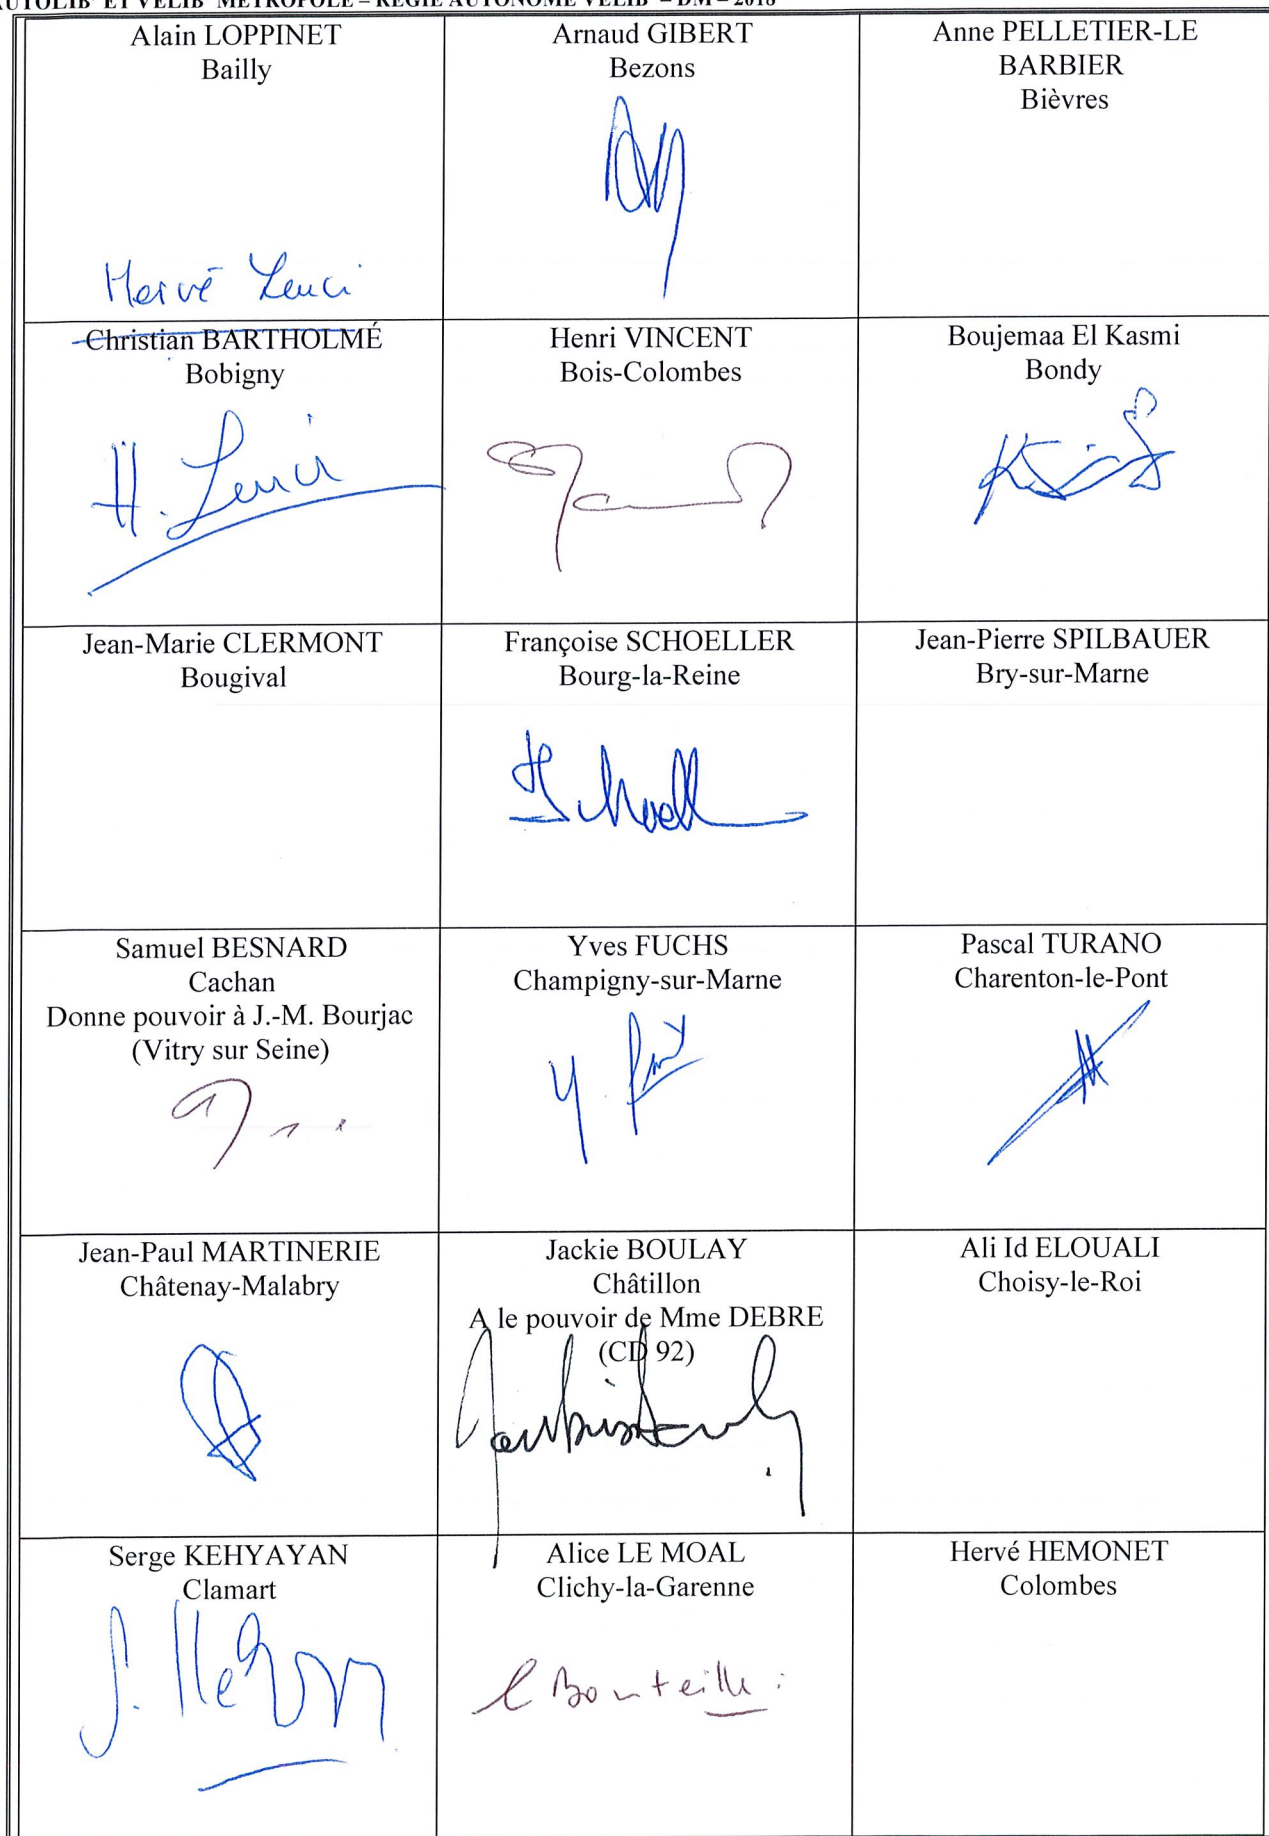 AUTOLIB' ET VELIB' METROPOLE – REGIE AUTONOME VELIB' – DM – 2018
Alain LOPPINET
Bailly
Hervé Leuci
Arnaud GIBERT
Bezons
Anne PELLETIER-LE
BARBIER
Bièvres
Christian BARTHOLMÉ
Bobigny
H. Leuci
Henri VINCENT
Bois-Colombes
Boujemaa El Kasmi
Bondy
Jean-Marie CLERMONT
Bougival
Françoise SCHOELLER
Bourg-la-Reine
Jean-Pierre SPILBAUER
Bry-sur-Marne
Samuel BESNARD
Cachan
Donne pouvoir à J.-M. Bourjac
(Vitry sur Seine)
Yves FUCHS
Champigny-sur-Marne
Pascal TURANO
Charenton-le-Pont
Jean-Paul MARTINERIE
Châtenay-Malabry
Jackie BOULAY
Châtillon
A le pouvoir de Mme DEBRE
(CD 92)
Ali Id ELOUALI
Choisy-le-Roi
Serge KEHYAYAN
Clamart
Alice LE MOAL
Clichy-la-Garenne
Hervé HEMONET
Colombes